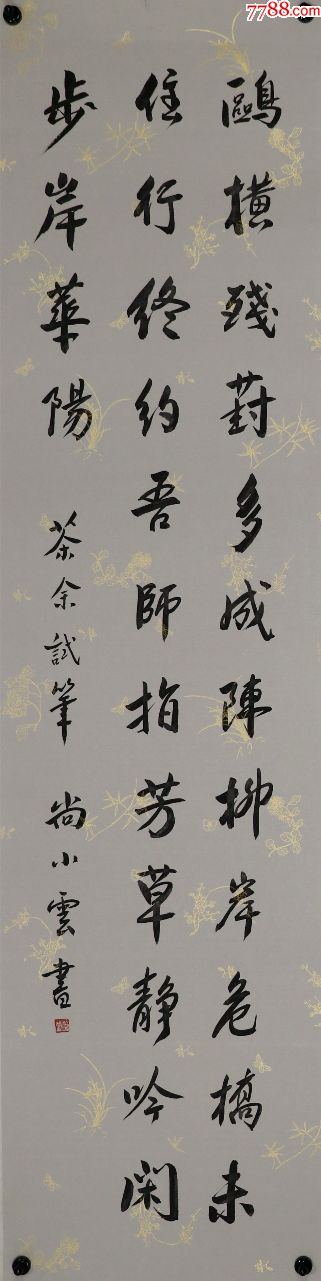 7788.com
鷗橫殘葑多成陳柳岸危橋未
住行終約吾師指芳草静吟閑
步岸華陽
茶余試筆 尚小雲書